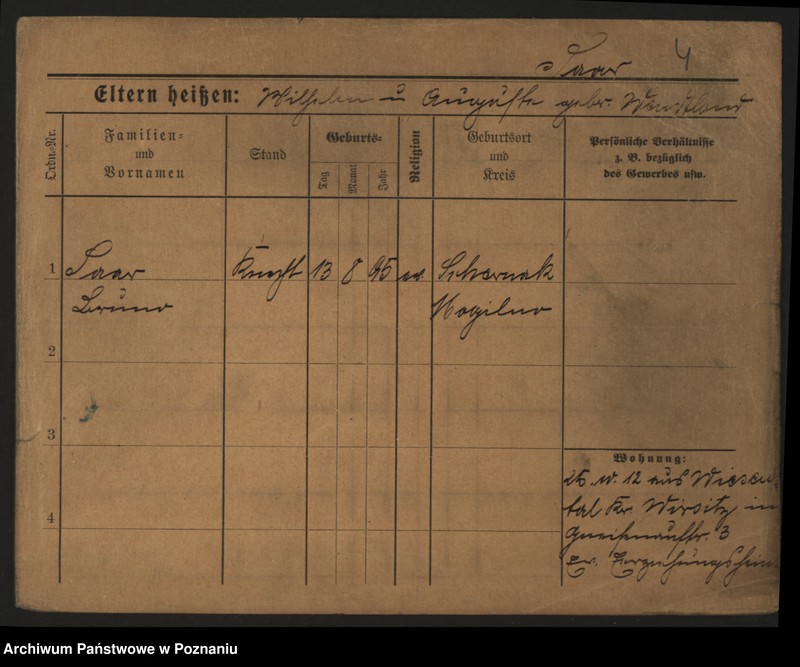 Saar 4
Eltern heißen: Wilhelm u Auguste gebr. Wendtland
Ordn.-Nr.
Familien-
und
Vornamen
Stand
Geburts-
Tag
Monat
Jahr
Religion
Geburtsort
und
Kreis
Persönliche Verhältnisse
z. B. bezüglich
des Gewerbes usw.
1 Saar Knecht 13 8 95 ev. Schernak
Bruno Mogilno
2
3
4
Wohnung:
25. IV. 12 aus Wiesen-
tal Kr. Wirsitz in
Gneisenaustr. 3
ev. Erziehungsheim
Archiwum Państwowe w Poznaniu